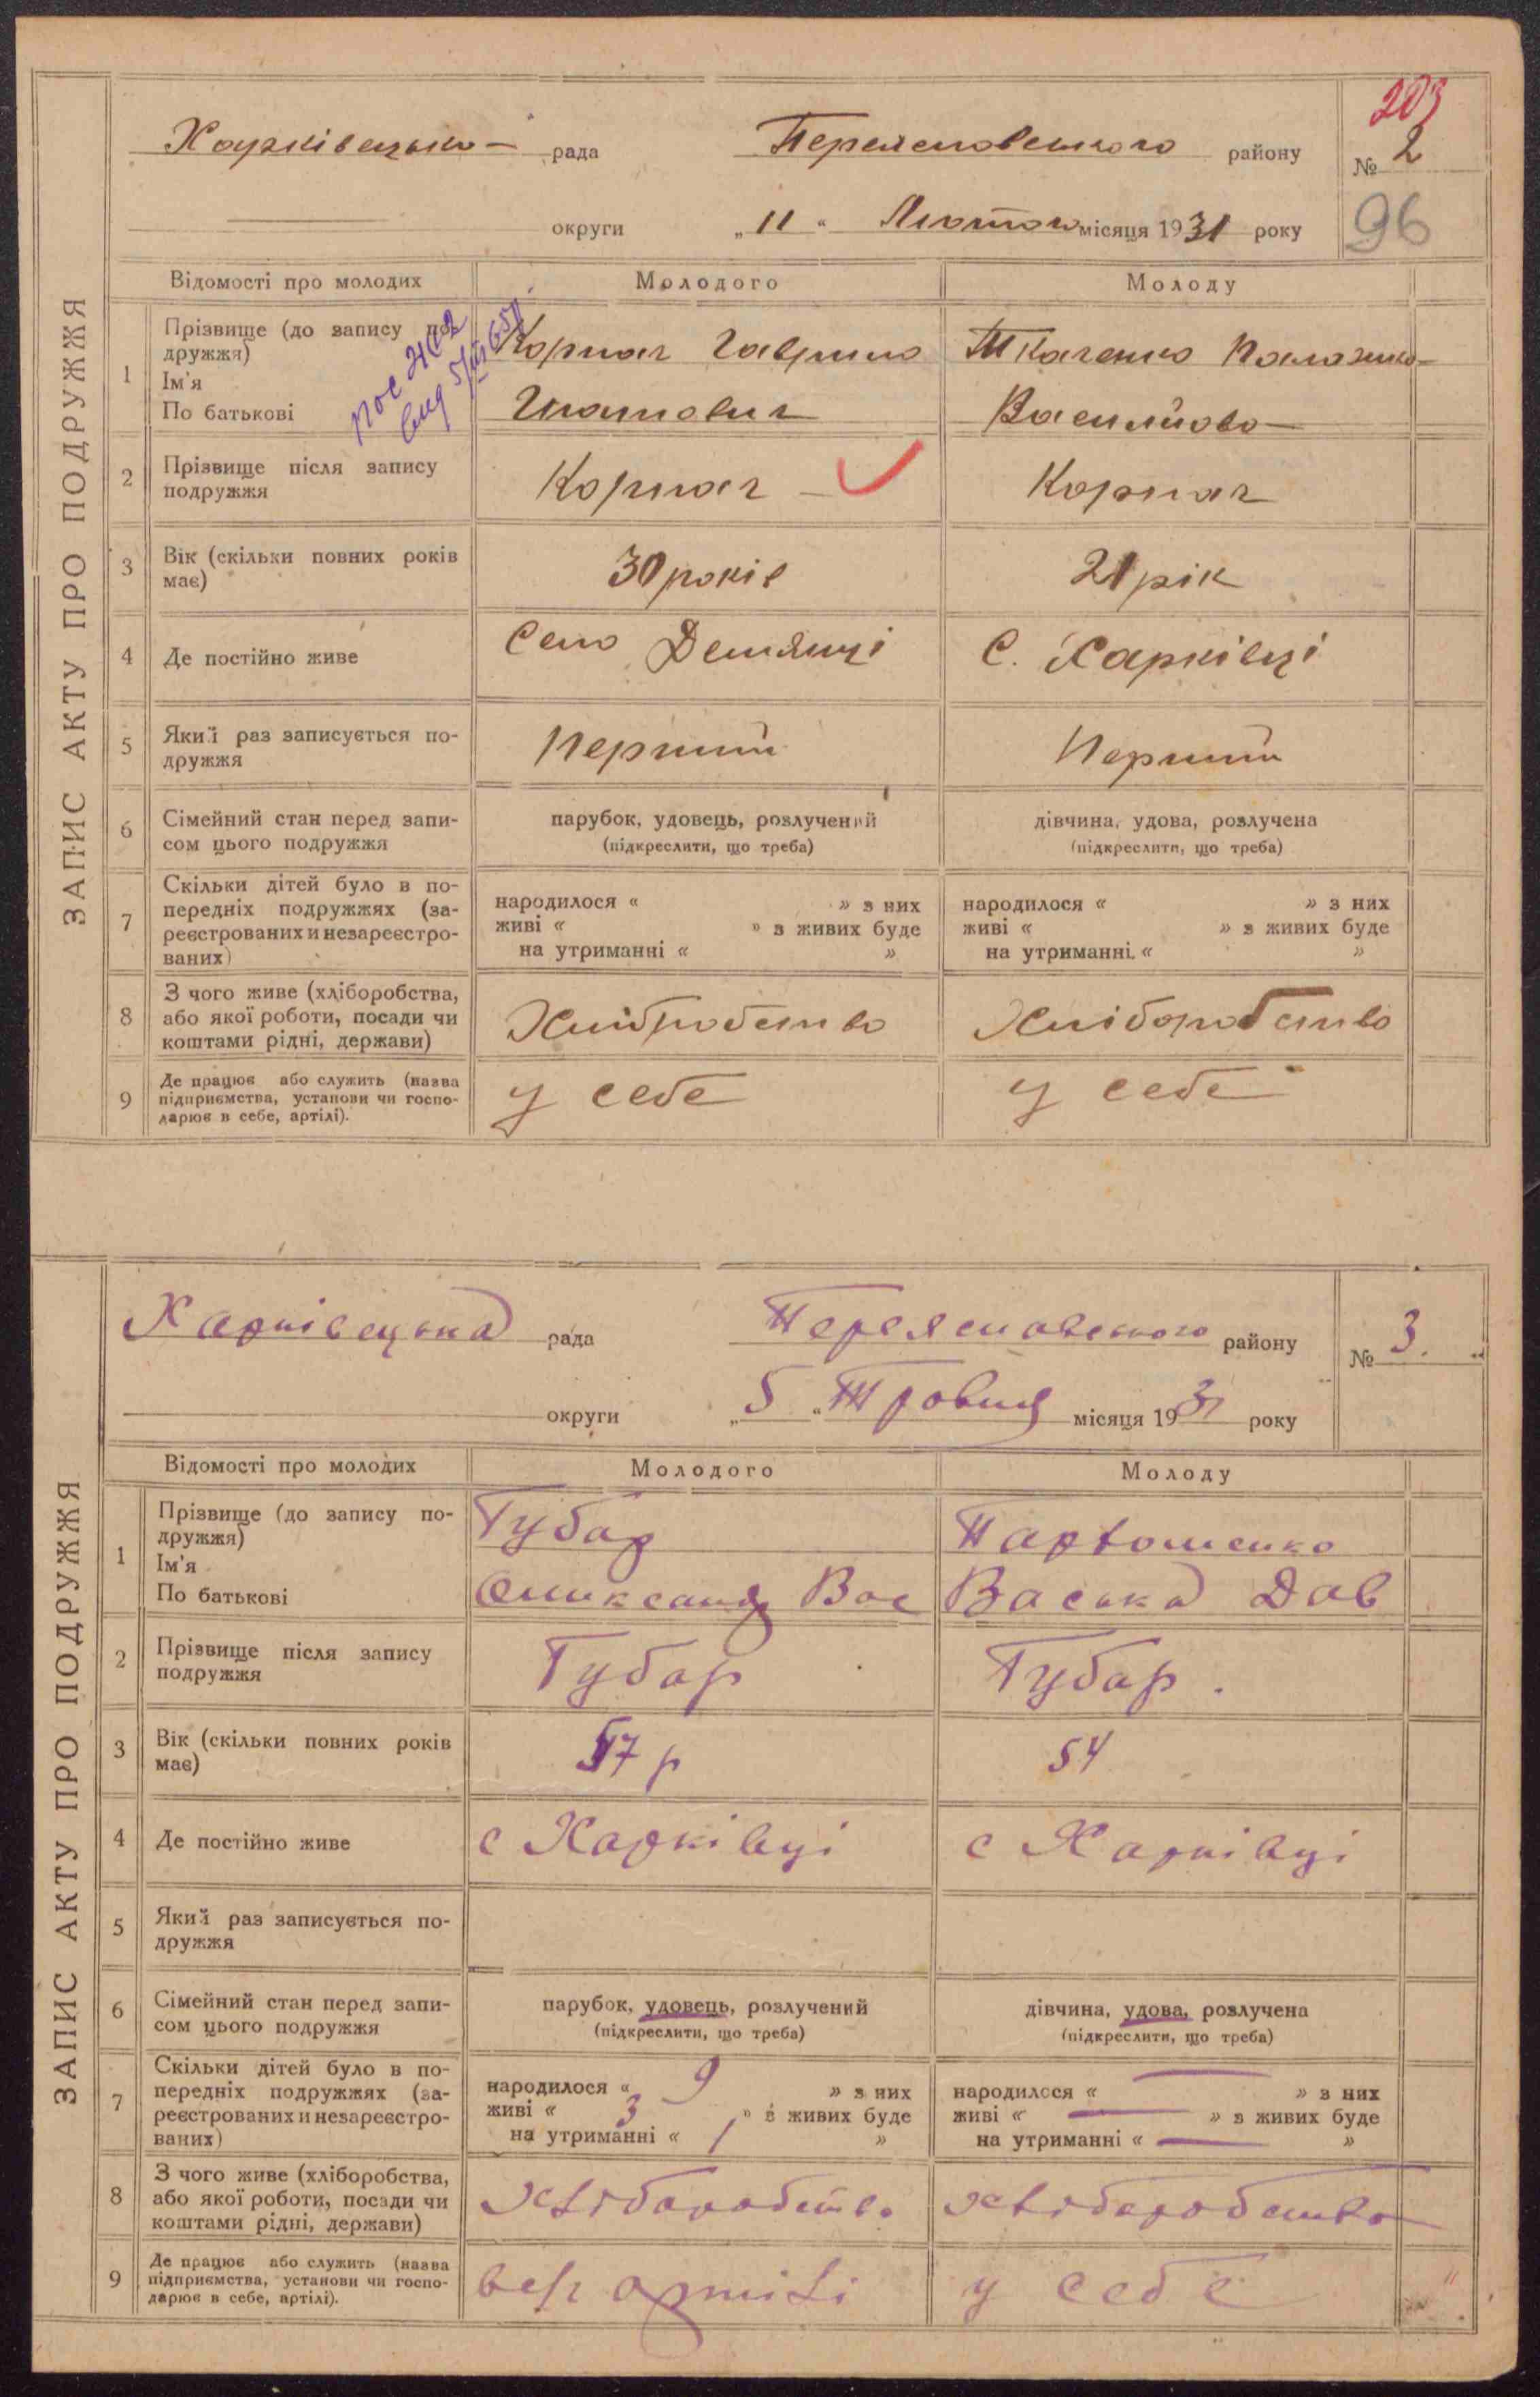 203
Харківецька рада Переяславського району № 2
округи „11“ Лютого місяця 1931 року 96
ЗАПИС АКТУ ПРО ПОДРУЖЖЯ
Відомості про молодих Молодого Молоду
1 Прізвище (до запису по-
дружжя)
Ім'я
По батькові
Корнач Гаврило
Ткаченко Палажка
Василівна
2 Прізвище після запису
подружжя
Корнач Корнач
3 Вік (скільки повних років
має)
30 років 21 рік
4 Де постійно живе Село Демянці С. Харківці
5 Який раз записується по-
дружжя
Перший Перший
6 Сімейний стан перед запи-
сом цього подружжя
парубок, удовець, розлучений
(підкреслити, що треба)
дівчина, удова, розлучена
(підкреслити, що треба)
7 Скільки дітей було в по-
передніх подружжях (за-
реєстрованих и незареєстро-
ваних)
народилося « » з них
живі « » з живих буде
на утриманні « »
народилося « » з них
живі « » з живих буде
на утриманні. « »
8 З чого живе (хліборобства,
або якої роботи, посади чи
коштами рідні, держави)
Хліборобство
9 Де працює або служить (назва
підприємства, установи чи госпо-
дарює в себе, артілі).
у себе у себе
Харківецька рада Переяславського району № 3.
округи „5“ Травня місяця 1931 року
ЗАПИС АКТУ ПРО ПОДРУЖЖЯ
Відомості про молодих Молодого Молоду
1 Прізвище (до запису по-
дружжя)
Ім'я
По батькові
Губар
Олександр Вас
Васька Дав
2 Прізвище після запису
подружжя
Губар Губар.
3 Вік (скільки повних років
має)
57 р 54
4 Де постійно живе с Харківці с Харківці
5 Який раз записується по-
дружжя
6 Сімейний стан перед запи-
сом цього подружжя
парубок, удовець, розлучений
(підкреслити, що треба)
дівчина, удова, розлучена
(підкреслити, що треба)
7 Скільки дітей було в по-
передніх подружжях (за-
реєстрованих и незареєстро-
ваних)
народилося « 9 » з них
живі « 3 » з живих буде
на утриманні « 1 »
народилося « — » з них
живі « — » з живих буде
на утриманні « — »
8 З чого живе (хліборобства,
або якої роботи, посади чи
коштами рідні, держави)
Хліборобство хліборобство
9 Де працює або служить (назва
підприємства, установи чи госпо-
дарює в себе, артілі).
артілі у себе